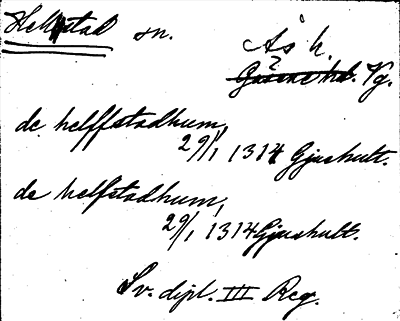 Hellstad sn.
Ås h.
Gäsene hd. Vg.
de helffstadhum,
29/1 1314 Gjushult.
de helfstadhum,
29/1 1314 Gjushult.
Sv. dipl. III Reg.